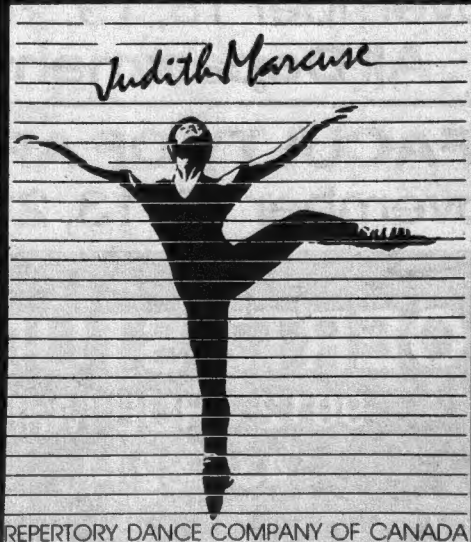 Judith Marcuse
REPERTORY DANCE COMPANY OF CANADA